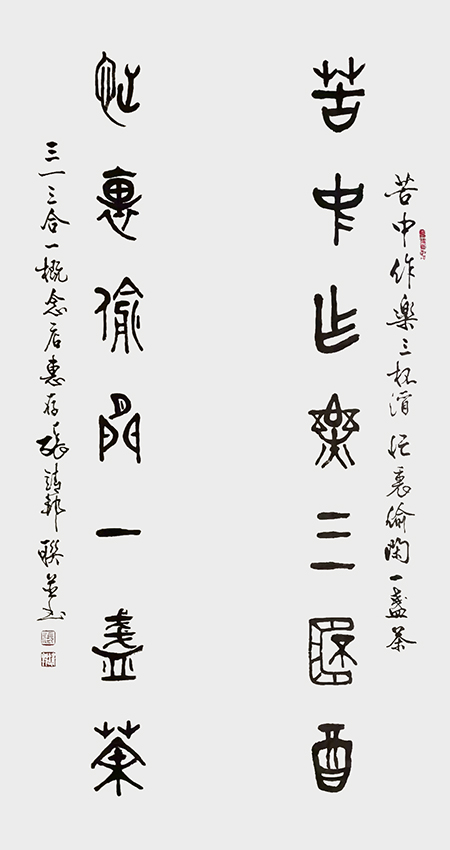 苦中作樂三杯酒 忙裏偷閒一盞茶
苦中作樂三杯酒
忙裏偷閒一盞茶
三一三合一概念店惠存 張 聯并書